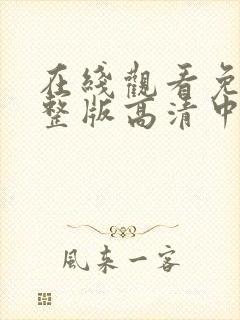 在綫觀看免
整版高清中
風来一客